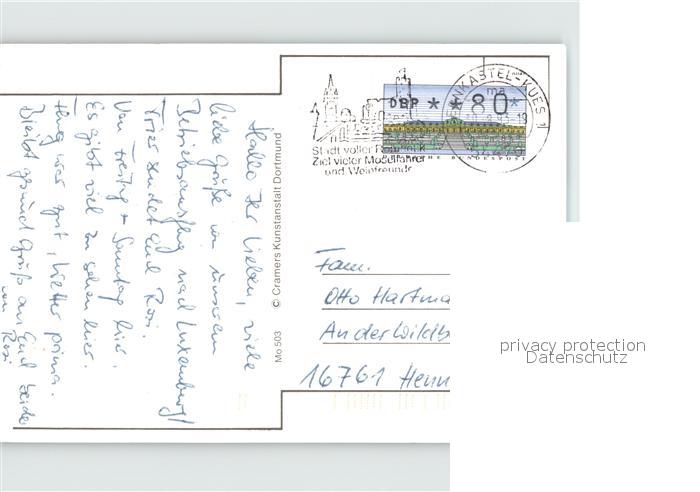 Hallo Ihr Lieben, viele
liebe Grüße von unserem
Betriebsausflug nach Luxemburg/
Trier sendet Euch Rosi.
Von Freitag - Sonntag hier.
Es gibt viel zu sehen hier.
war gut, Wetter prima.
Bleibt gesund Grüße an Euch beide
von Rosi
Mo 503 © Cramers Kunstanstalt Dortmund
Stadt voller Romantik
Ziel vieler Moselfahrer
und Weinfreunde
DBP * * 80 *
BERNKASTEL-KUES 1
DEUTSCHE BUNDESPOST
Fam.
Otto Hartma
An der Wildb
16761 Henn
privacy protection
Datenschutz